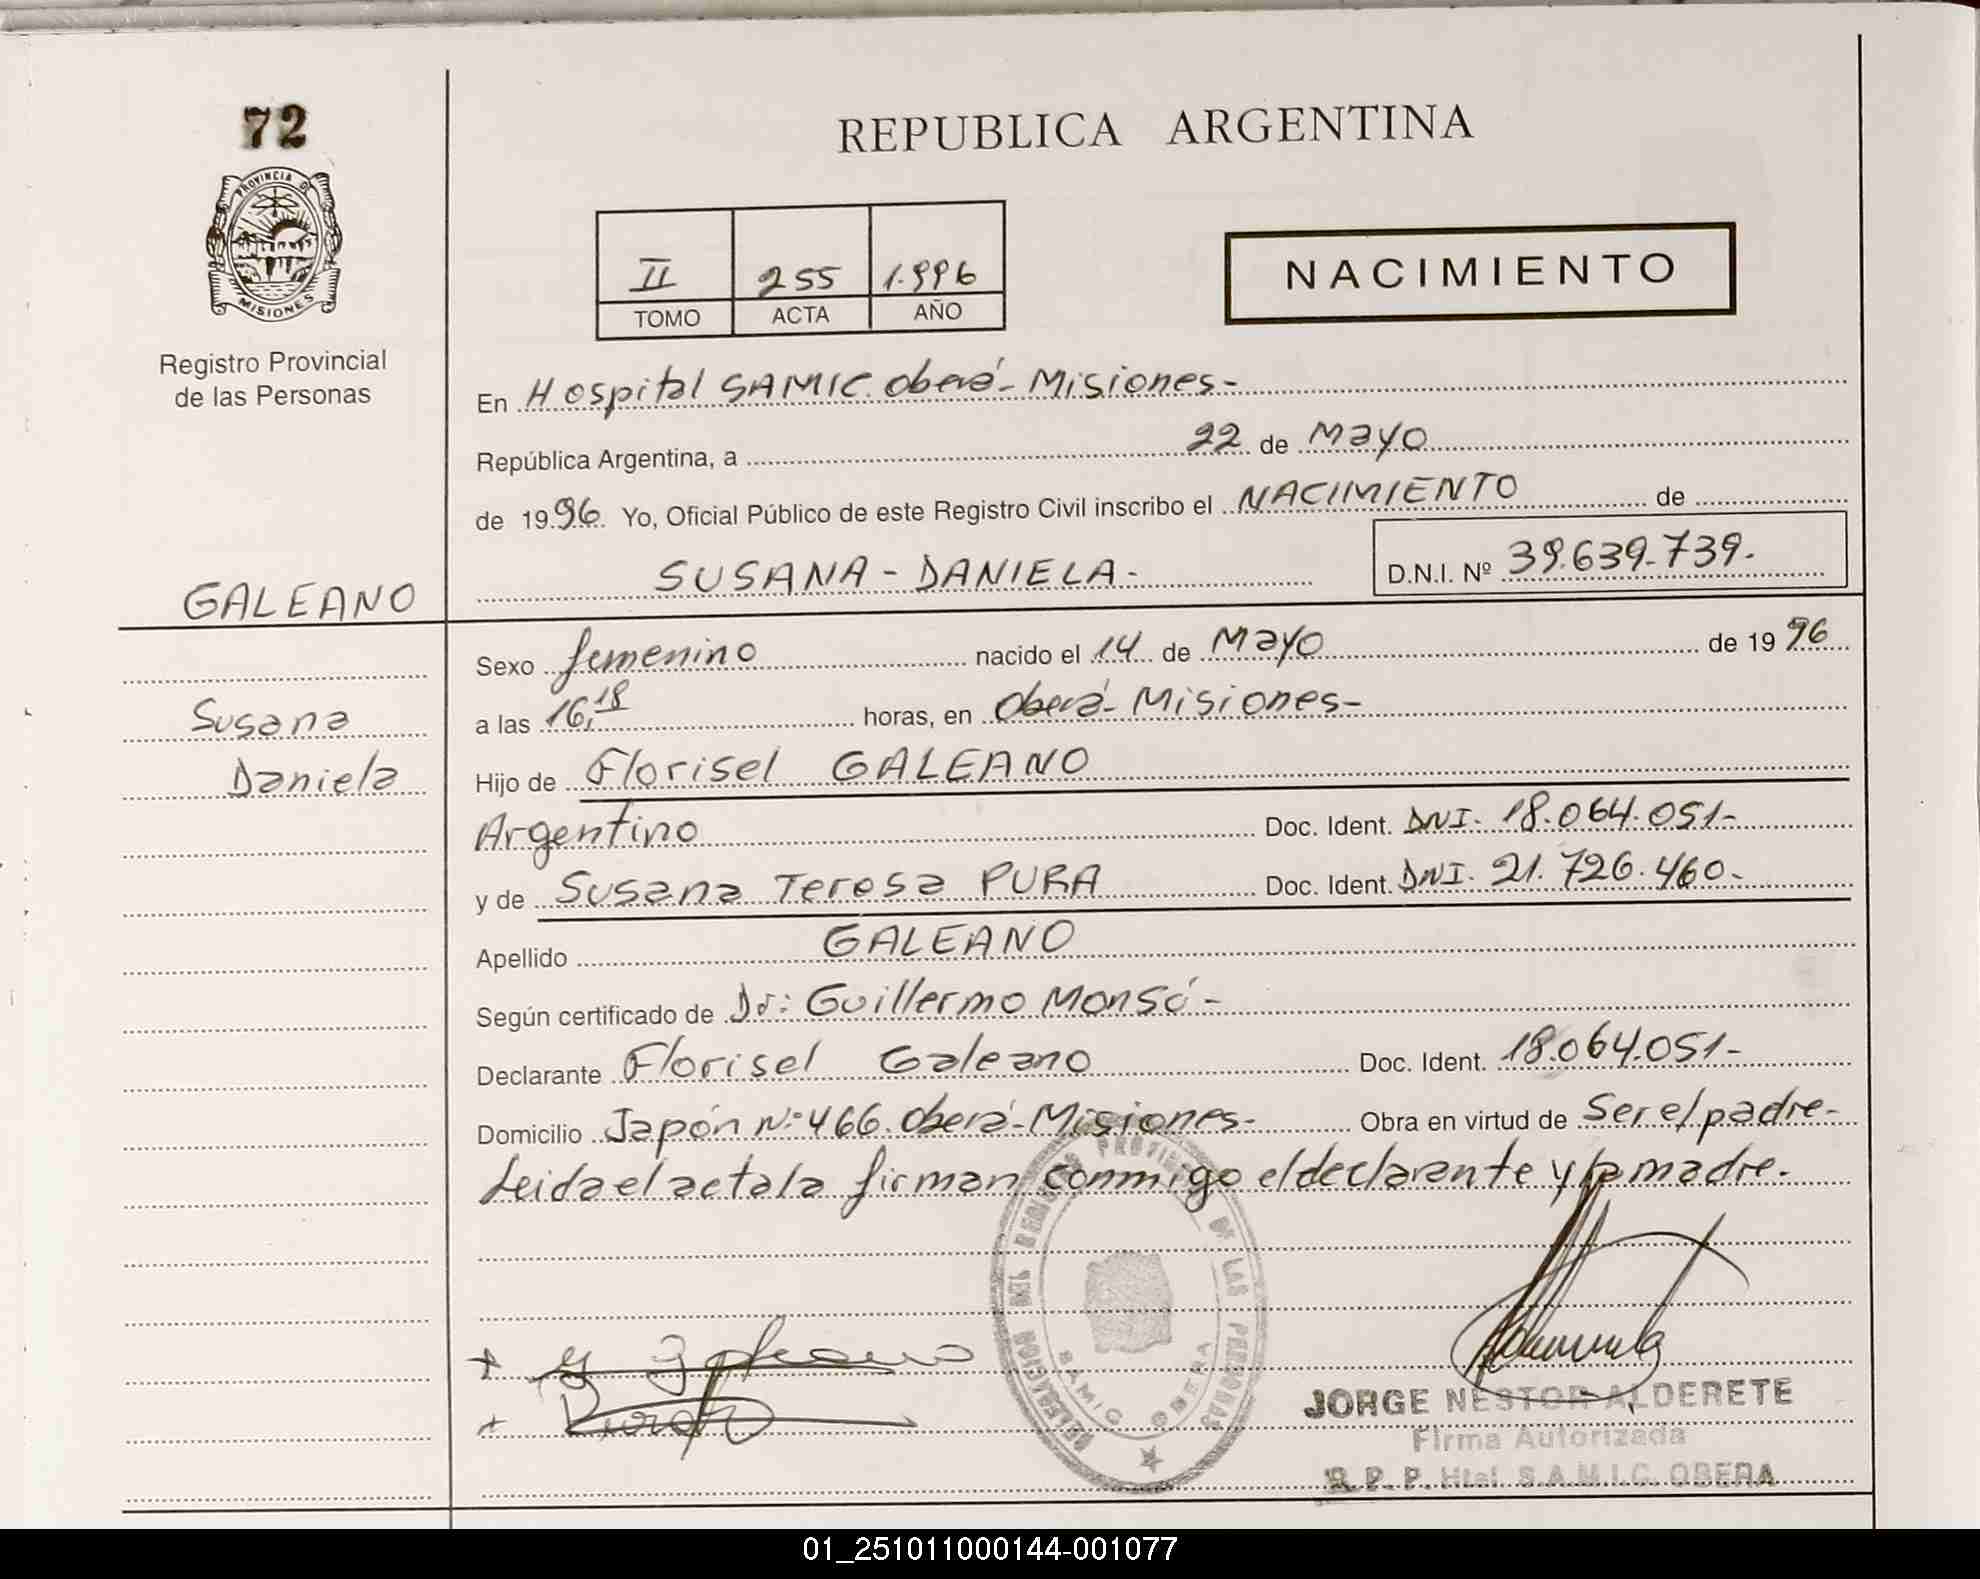 72
PROVINCIA DE
MISIONES
Registro Provincial
de las Personas
REPUBLICA ARGENTINA
II 255 1.996
TOMO ACTA AÑO
NACIMIENTO
En Hospital SAMIC. Oberá- Misiones-
República Argentina, a 22 de Mayo
de 1996 Yo, Oficial Público de este Registro Civil inscribo el NACIMIENTO de
SUSANA - DANIELA- D.N.I. Nº 39.639.739.
GALEANO
Susana
Daniela
Sexo femenino nacido el 14 de Mayo de 1996
a las 16,18 horas, en Oberá- Misiones-
Hijo de Florisel GALEANO
Argentino Doc. Ident. DNI. 18.064.051-
y de Susana Teresa PURA Doc. Ident. DNI. 21.726.460-
Apellido GALEANO
Según certificado de Dr: Guillermo Monsó-
Declarante Florisel Galeano Doc. Ident. 18.064.051-
Domicilio Japón Nº 466. Oberá- Misiones- Obra en virtud de Ser el padre-
Leida el acta la firman conmigo el declarante y la madre-
DELEGACION DEL REGISTRO PROVINCIAL DE LAS PERSONAS
SAMIC OBERA
JORGE NESTOR ALDERETE
Firma Autorizada
R.P.P. Htal. S.A.M.I.C. OBERA
01_251011000144-001077